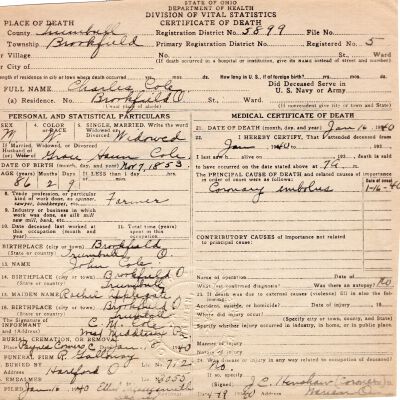 STATE OF OHIO
DEPARTMENT OF HEALTH
DIVISION OF VITAL STATISTICS
CERTIFICATE OF DEATH
PLACE OF DEATH
County Trumbull Registration District No. 5899 File No.
Township Brookfield Primary Registration District No. Registered No. 5
or Village No. St., Ward
(If death occurred in a hospital or institution, give its NAME instead of street and number)
Length of residence in city or town where death occurred yrs. mos. ds. How long in U. S., if of foreign birth? yrs. mos. ds.
FULL NAME Charles Cole Did Deceased Serve in U. S. Navy or Army
(a) Residence. No. Brookfield O. St., Ward.
(If nonresident give city or town and State)
PERSONAL AND STATISTICAL PARTICULARS
3. SEX M 4. COLOR or RACE W 5. SINGLE, MARRIED, Write the word Widowed or Divorced Widowed
If Married, Widowed, or Divorced
Husband of
(or) Wife of Grace Cole
DATE OF BIRTH (month, day, and year) Nov 7, 1853
AGE (Years) Months Days If LESS than 1 day hrs.
86 2 9
8. Trade, profession, or particular kind of work done, as spinner, sawyer, bookkeeper, etc. Farmer
9. Industry or business in which work was done, as silk mill, saw mill, bank, etc.
10. Date deceased last worked at this occupation (month and year) 11. Total time (years) spent in this occupation
12. BIRTHPLACE (city or town) Brookfield
(State or country) Trumbull O.
13. NAME John Cole
14. BIRTHPLACE (city or town) Brookfield O
(State or country) Trumbull
15. MAIDEN NAME Applegate
16. BIRTHPLACE (city or town) Brookfield O
(State or country) Trumbull
17. The Signature of INFORMANT C. M. Cole
and Address West Middlesex Pa
BURIAL, CREMATION, OR REMOVAL
Place Paynes Corners O. Date Jan 1940
FUNERAL FIRM R. Galloway
BURIED BY Lic. No. 712
Address Hartford O
EMBALMER Lic.
FILED Jan 16 1940
MEDICAL CERTIFICATE OF DEATH
21. DATE OF DEATH (month, day, and year) Jan 16 1940
22. I HEREBY CERTIFY, That I attended deceased from
Jan 1940
I last saw h alive on , 193 , death is said
to have occurred on the date stated above at 7 a
The PRINCIPAL CAUSE OF DEATH and related causes of importance in order of onset were as follows:
Coronary embolus 1-16-40
CONTRIBUTORY CAUSES of importance not related to principal cause:
Name of operation Date of
What test confirmed diagnosis? Was there an autopsy? No
23. If death was due to external causes (violence) fill in also the following:
Accident, suicide, or homicide? Date of injury 19
Where did injury occur?
(Specify city or town, county, and State)
Specify whether injury occurred in industry, in home, or in public place.
Manner of injury
Nature of injury
24. Was disease or injury in any way related to occupation of deceased?
No.
If so, specify
(Signed) J. C. Henshaw (Coroner)
1940 Warren O.